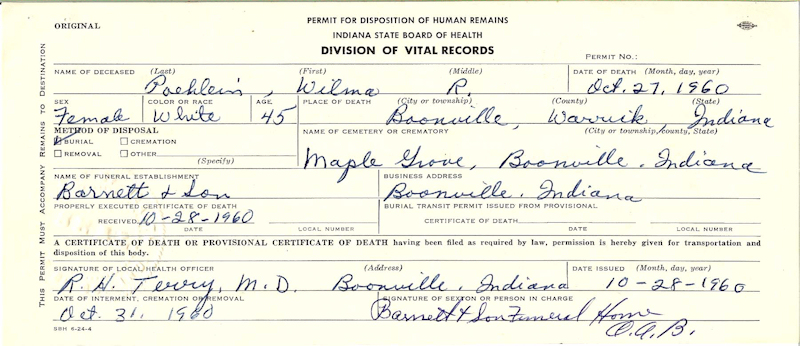 ORIGINAL
PERMIT FOR DISPOSITION OF HUMAN REMAINS
INDIANA STATE BOARD OF HEALTH
DIVISION OF VITAL RECORDS
PERMIT NO.:
THIS PERMIT MUST ACCOMPANY REMAINS TO DESTINATION
NAME OF DECEASED (Last) (First) (Middle) DATE OF DEATH (Month, day, year)
Poehlein, Wilma R. Oct. 27, 1960
SEX COLOR OR RACE AGE PLACE OF DEATH (City or township) (County) (State)
Female White 45 Boonville, Warrick, Indiana
METHOD OF DISPOSAL NAME OF CEMETERY OR CREMATORY (City or township, county, State)
BURIAL CREMATION
REMOVAL OTHER
(Specify)
Maple Grove, Boonville, Indiana
NAME OF FUNERAL ESTABLISHMENT BUSINESS ADDRESS
Barnett & Son Boonville, Indiana
PROPERLY EXECUTED CERTIFICATE OF DEATH BURIAL TRANSIT PERMIT ISSUED FROM PROVISIONAL
RECEIVED 10-28-1960 CERTIFICATE OF DEATH
DATE LOCAL NUMBER DATE LOCAL NUMBER
A CERTIFICATE OF DEATH OR PROVISIONAL CERTIFICATE OF DEATH having been filed as required by law, permission is hereby given for transportation and
disposition of this body.
SIGNATURE OF LOCAL HEALTH OFFICER (Address) DATE ISSUED (Month, day, year)
R. H. Terry, M.D. Boonville, Indiana 10-28-1960
DATE OF INTERMENT, CREMATION OR REMOVAL SIGNATURE OF SEXTON OR PERSON IN CHARGE
Oct 31, 1960 Barnett & Son Funeral Home
O.A.B.
SBH 6-24-4